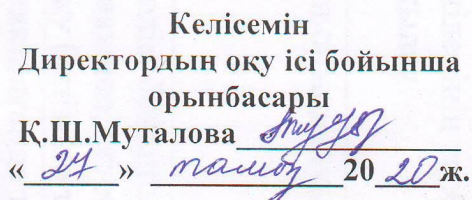 Келісемін
Директордың оқу ісі бойынша
орынбасары
Қ.Ш.Муталова
«27» тамыз 2020ж.